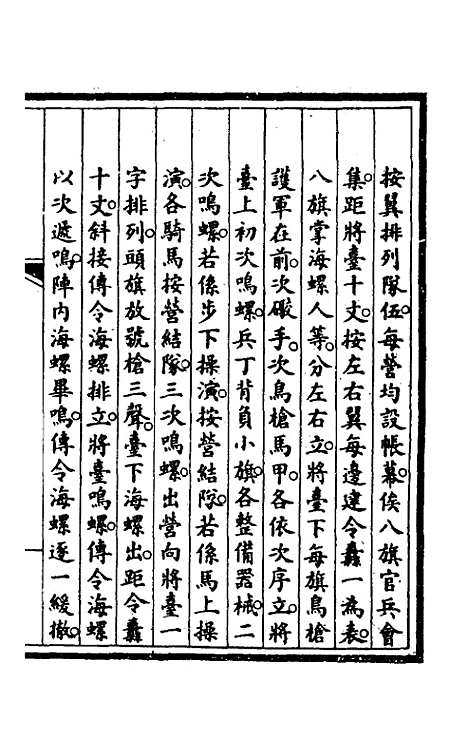 按翼排列隊伍。每營均設帳幕。俟八旗官兵會
集。距將臺十丈。按左右翼每邊建令纛一為表。
八旗掌海螺人等。分左右立。將臺下每旗鳥槍
護軍在前。次礮手。次鳥槍馬甲。各依次序立。將
臺上初次鳴螺。兵丁背負小旗。各整備器械。二
次鳴螺。若係步下操演。按營結隊。若係馬上操
演。各騎馬按營結隊。三次鳴螺。出營向將臺一
字排列。頭旗放號槍三聲。臺下海螺出。距令纛
十丈。斜接傳令海螺排立。將臺鳴螺。傳令海螺
以次遞鳴。陣內海螺畢鳴。傳令海螺逐一緩撤。